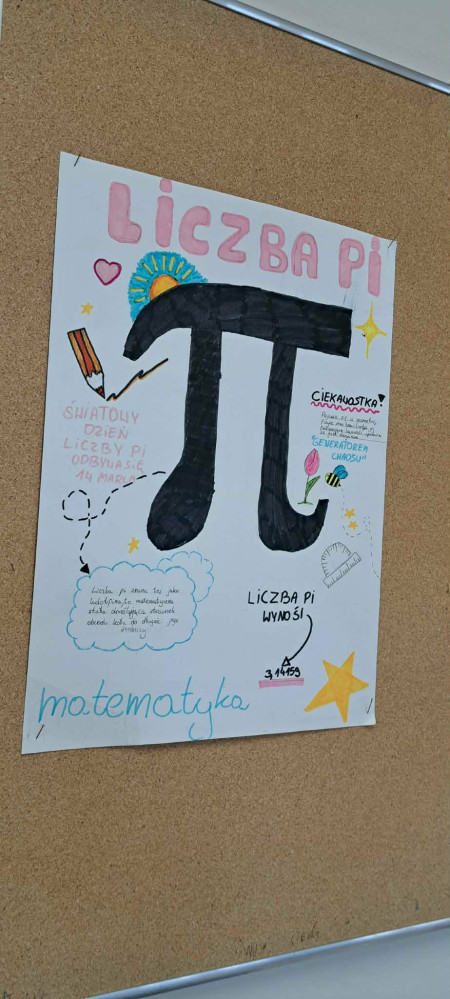 LICZBA PI
ŚWIATOWY
DZIEŃ
LICZBY PI
ODBYWA SIĘ
14 MARCA
CIEKAWOSTKA!
"GENERATOREM
CHAOSU"
Liczba pi znana też jako
ludolfina, to matematyczna
stała określająca stosunek
obwodu koła do długości jego
średnicy
LICZBA PI
WYNOSI
3,14159
matematyka